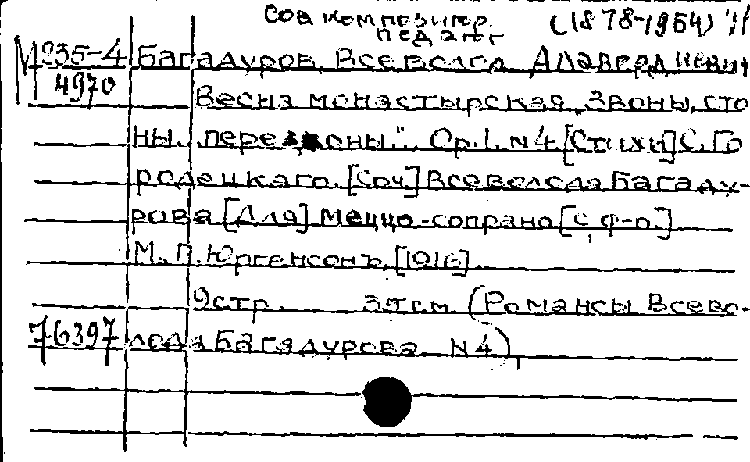 Сов композитор. (1878-1954)
педагог
М 235-4 Багадуров, Всеволод Алавердиевич
4970 Весна монастырская „Звоны, сто
ны. перезвоны". Ор.1. N4 [Стихи] С. Го
родецкаго. [Соч] Всеволода Багаду-
рова [Для] меццо-сопрано [с ф-о.]
М. П. Юргенсонъ. [1916]
9 стр. (Романсы Всево-
76397 лода Багадурова N4)